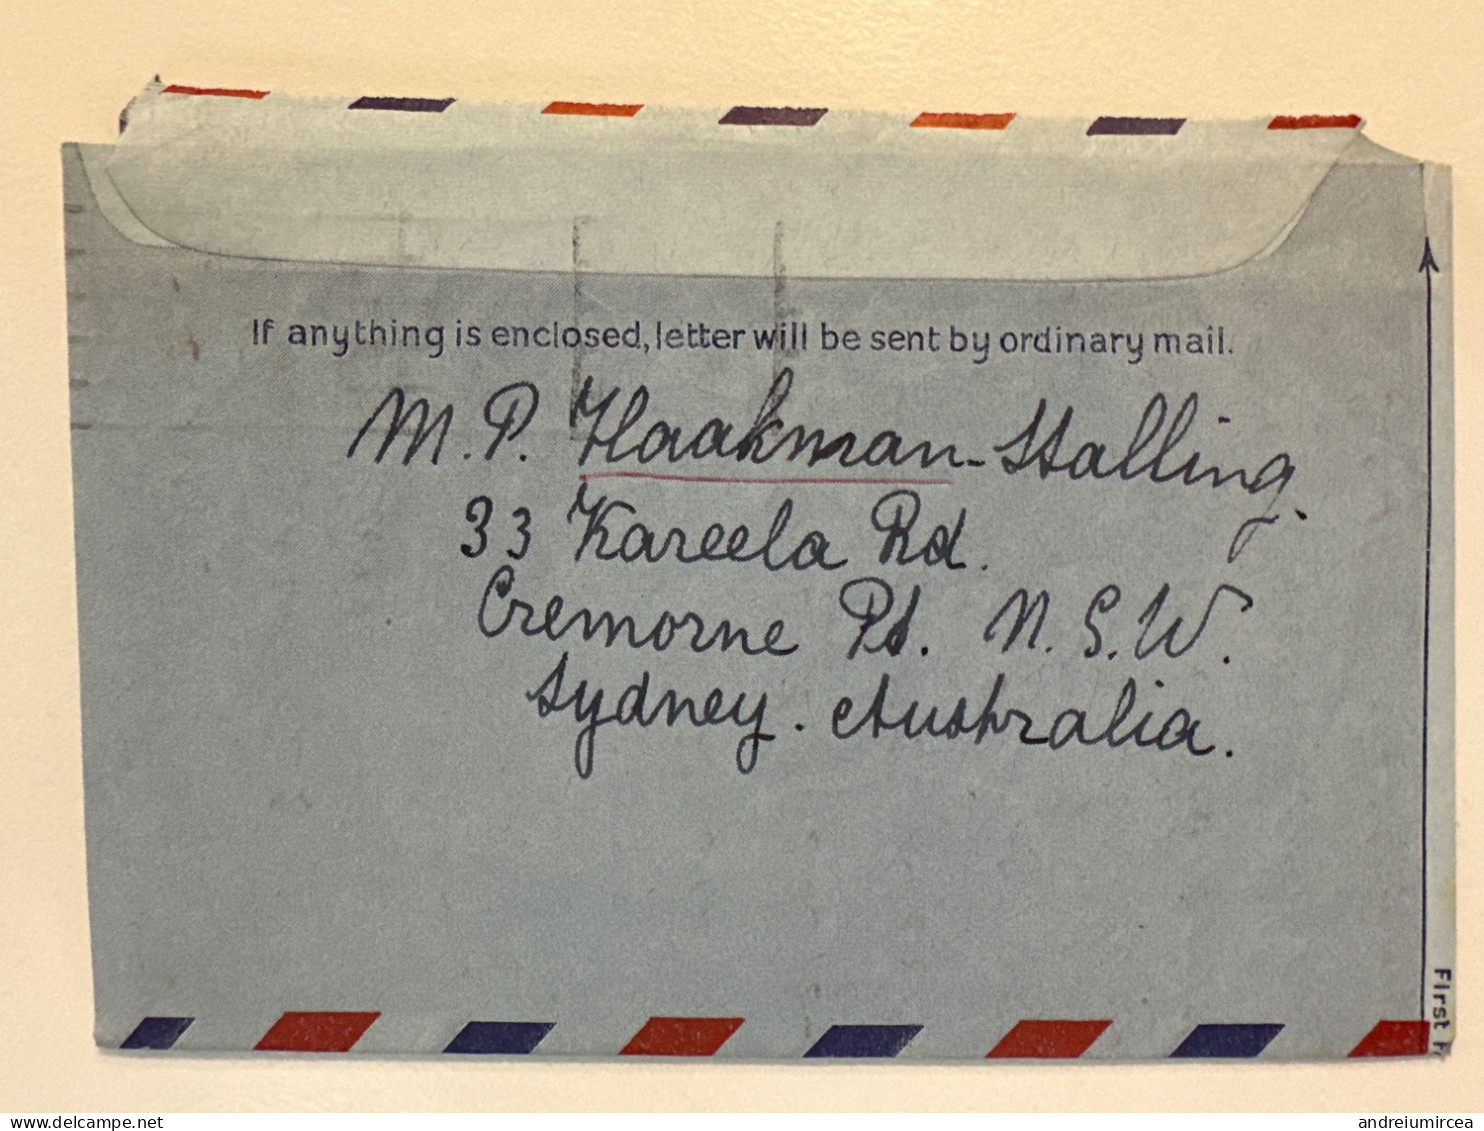 If anything is enclosed, letter will be sent by ordinary mail.
M. P. Haakman-Stalling.
33 Kareela Rd.
Cremorne Pt. N.S.W.
Sydney. Australia.
First
www.delcampe.net
andreiumircea